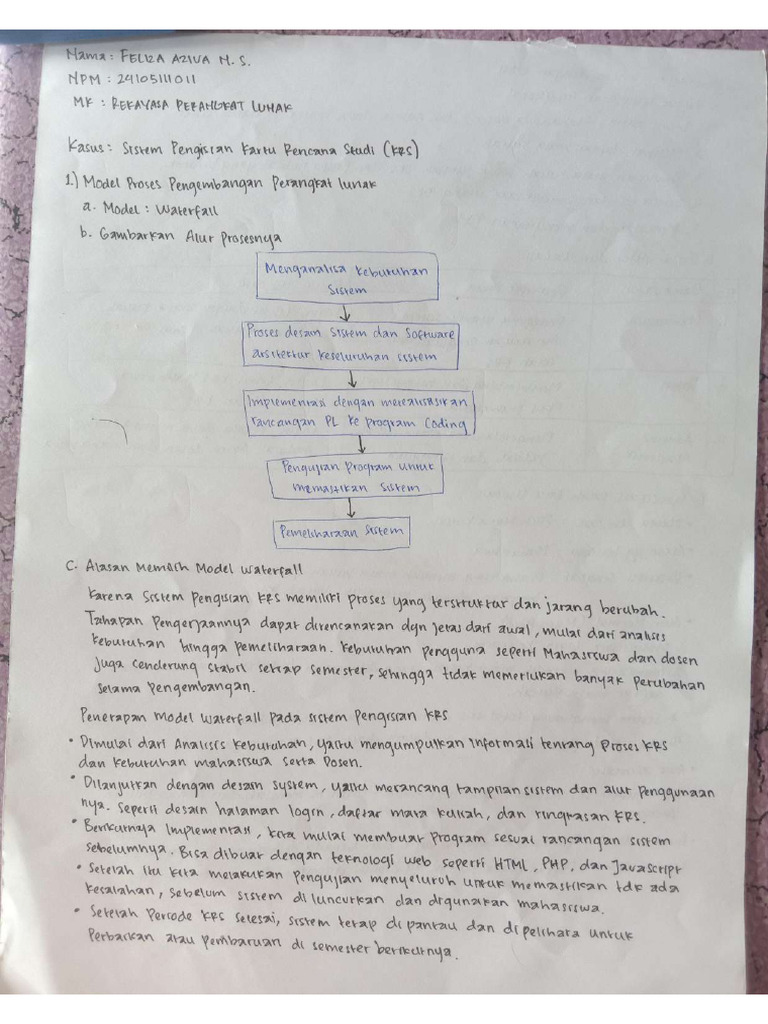 Nama : FELIZA AZIVA N. S.
NPM : 24105111011
MK : REKAYASA PERANGKAT LUNAK
Kasus : Sistem Pengisian Kartu Rencana Studi (KRS)
1.) Model Proses Pengembangan Perangkat lunak
a. Model : Waterfall
b. Gambarkan Alur Prosesnya
Menganalisa Kebutuhan
Sistem
Proses desain Sistem dan Software
arsitektur keseluruhan sistem
Implementasi dengan merealisasikan
rancangan PL ke program Coding
Pengujian program untuk
memastikan sistem
Pemeliharaan Sistem
C. Alasan Memilih Model Waterfall
Karena Sistem Pengisian KRS memiliki proses yang terstruktur dan jarang berubah.
Tahapan Pengerjaannya dapat direncanakan dgn jelas dari awal, mulai dari analisis
kebutuhan hingga pemeliharaan. Kebutuhan pengguna seperti Mahasiswa dan dosen
juga cenderung stabil setiap semester, sehingga tidak memerlukan banyak perubahan
selama pengembangan.
Penerapan Model Waterfall pada sistem Pengisian KRS
• Dimulai dari Analisis Kebutuhan, yaitu mengumpulkan informasi tentang Proses KRS
dan kebutuhan mahasiswa serta Dosen.
• Dilanjutkan dengan desain system, yaitu merancang tampilan sistem dan alur penggunaan
nya. Seperti desain halaman login, daftar mata kuliah, dan ringkasan KRS.
• Berikutnya Implementasi, kita mulai membuat program sesuai rancangan sistem
sebelumnya. Bisa dibuat dengan teknologi web seperti HTML, PHP, dan JavaScript
• Setelah itu kita melakukan Pengujian menyeluruh untuk memastikan tdk ada
kesalahan, sebelum sistem diluncurkan dan digunakan mahasiswa.
• Setelah Periode KRS selesai, sistem tetap di pantau dan di pelihara untuk
Perbaikan atau pembaruan di semester berikutnya.